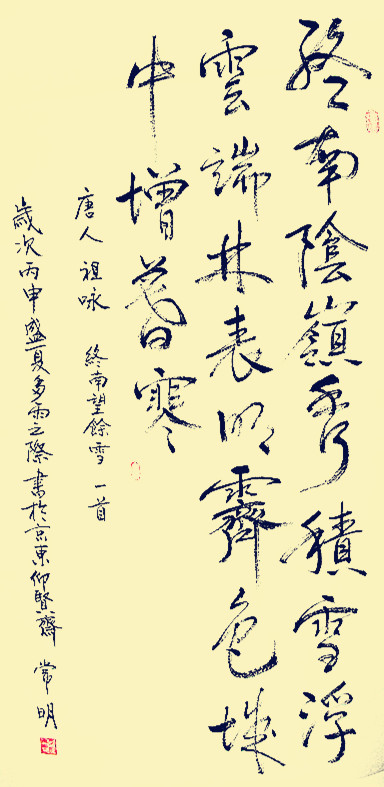 終南陰嶺秀積雪浮
雲端林表明霽色城
中增暮寒
唐人祖咏 終南望餘雪 一首
歲次丙申盛夏多雨之際書於京東仰賢齋 常明